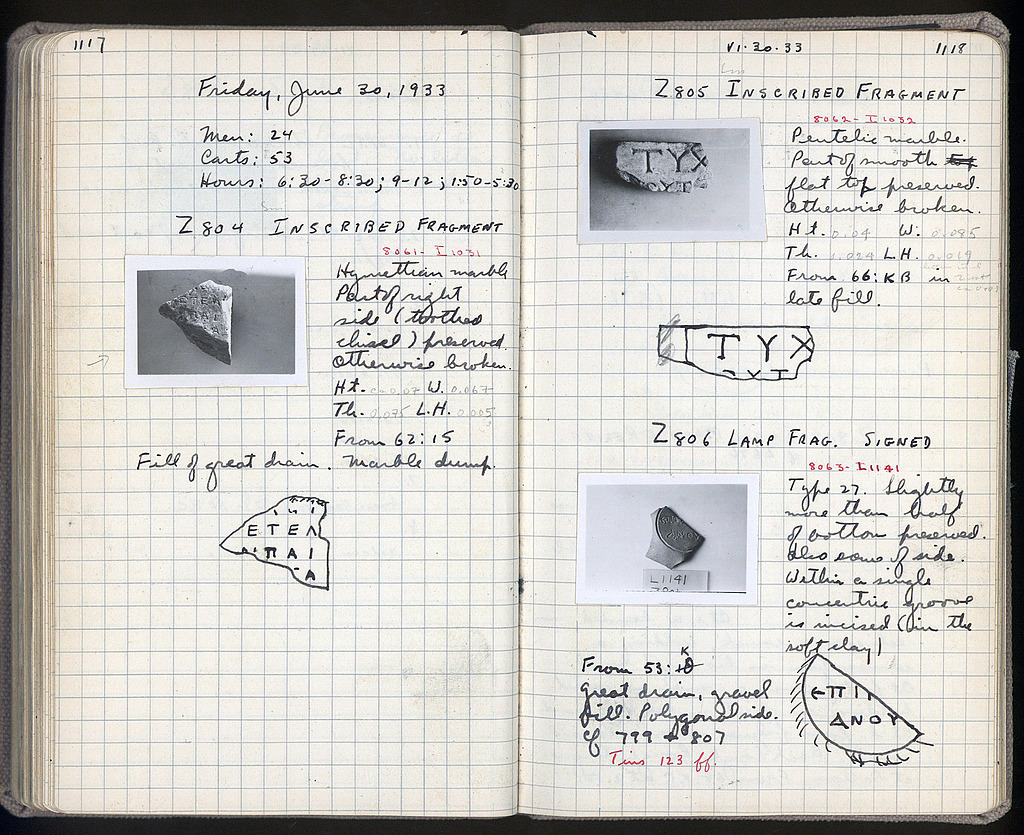 1117
Friday, June 30, 1933
Men: 24
Carts: 53
Hours: 6:30-8:30; 9-12; 1:50-5:30
Z 804 INSCRIBED FRAGMENT
8061- I 1031
Hymettian marble
Part of right
side (toothed
chisel) preserved.
Otherwise broken.
Ht. ca 0.07 W. 0.067
Th. 0.075 L.H. 0.005
From 62:15
Fill of great drain. Marble dump.
ΕΤΕΛ
ΠΑΙ
Α
VI·30·33
1118
Z 805 INSCRIBED FRAGMENT
8062- I 1032
Pentelic marble.
Part of smooth
flat top preserved.
Otherwise broken.
Ht. 0.04 W. 0.085
Th. .024 L.H. 0.019
From 66:KB in
late fill.
ΤΥΧ
ΤΥΧ
Z 806 LAMP FRAG. SIGNED
8063- L1141
Type 27. Slightly
more than half
of bottom preserved.
Also some of side.
Within a single
concentric groove
is incised (in the
soft clay)
L1141
From 53:K
Great drain, gravel
fill. Polygonal side.
Cf 799 + 807
Tins 123 ff.
ΕΠΙ
ΑΝΟΥ